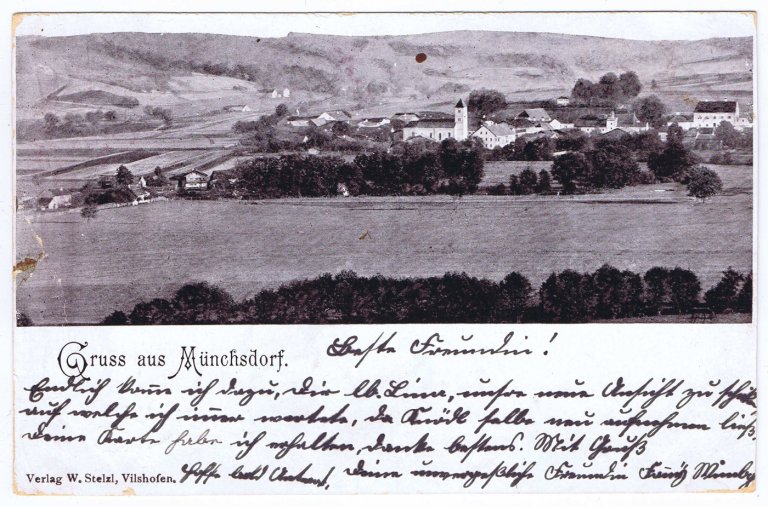 Gruss aus Münchsdorf.
Beste Freundin!
Endlich komme ich dazu, Dir lb. Lina, unsre neue Ansicht zu
auf welche ich imer wartete, da selbe neu aufnehmen ließ.
Deine Karte habe ich erhalten, danke bestens. Mit Gruß
Hoffe bald Antwort, Deine unvergeßliche Freundin Fanny
Verlag W. Stelzl, Vilshofen.